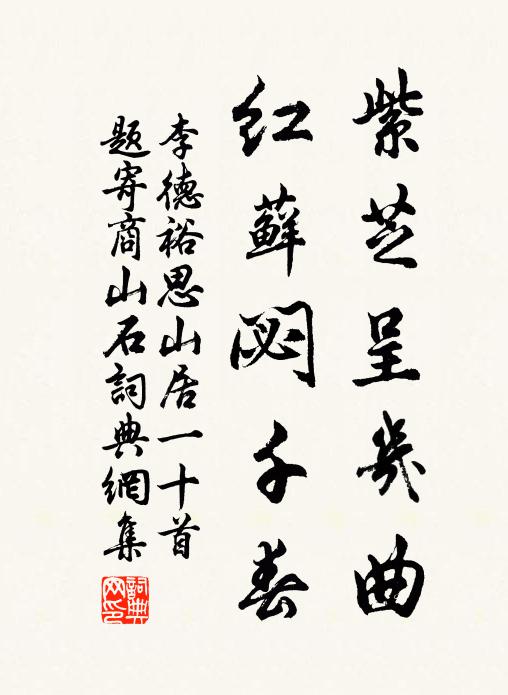 紫芝呈幾曲
紅蘚閟千春
李德裕思山居一十首
題寄商山石詞典網集
詞典網印